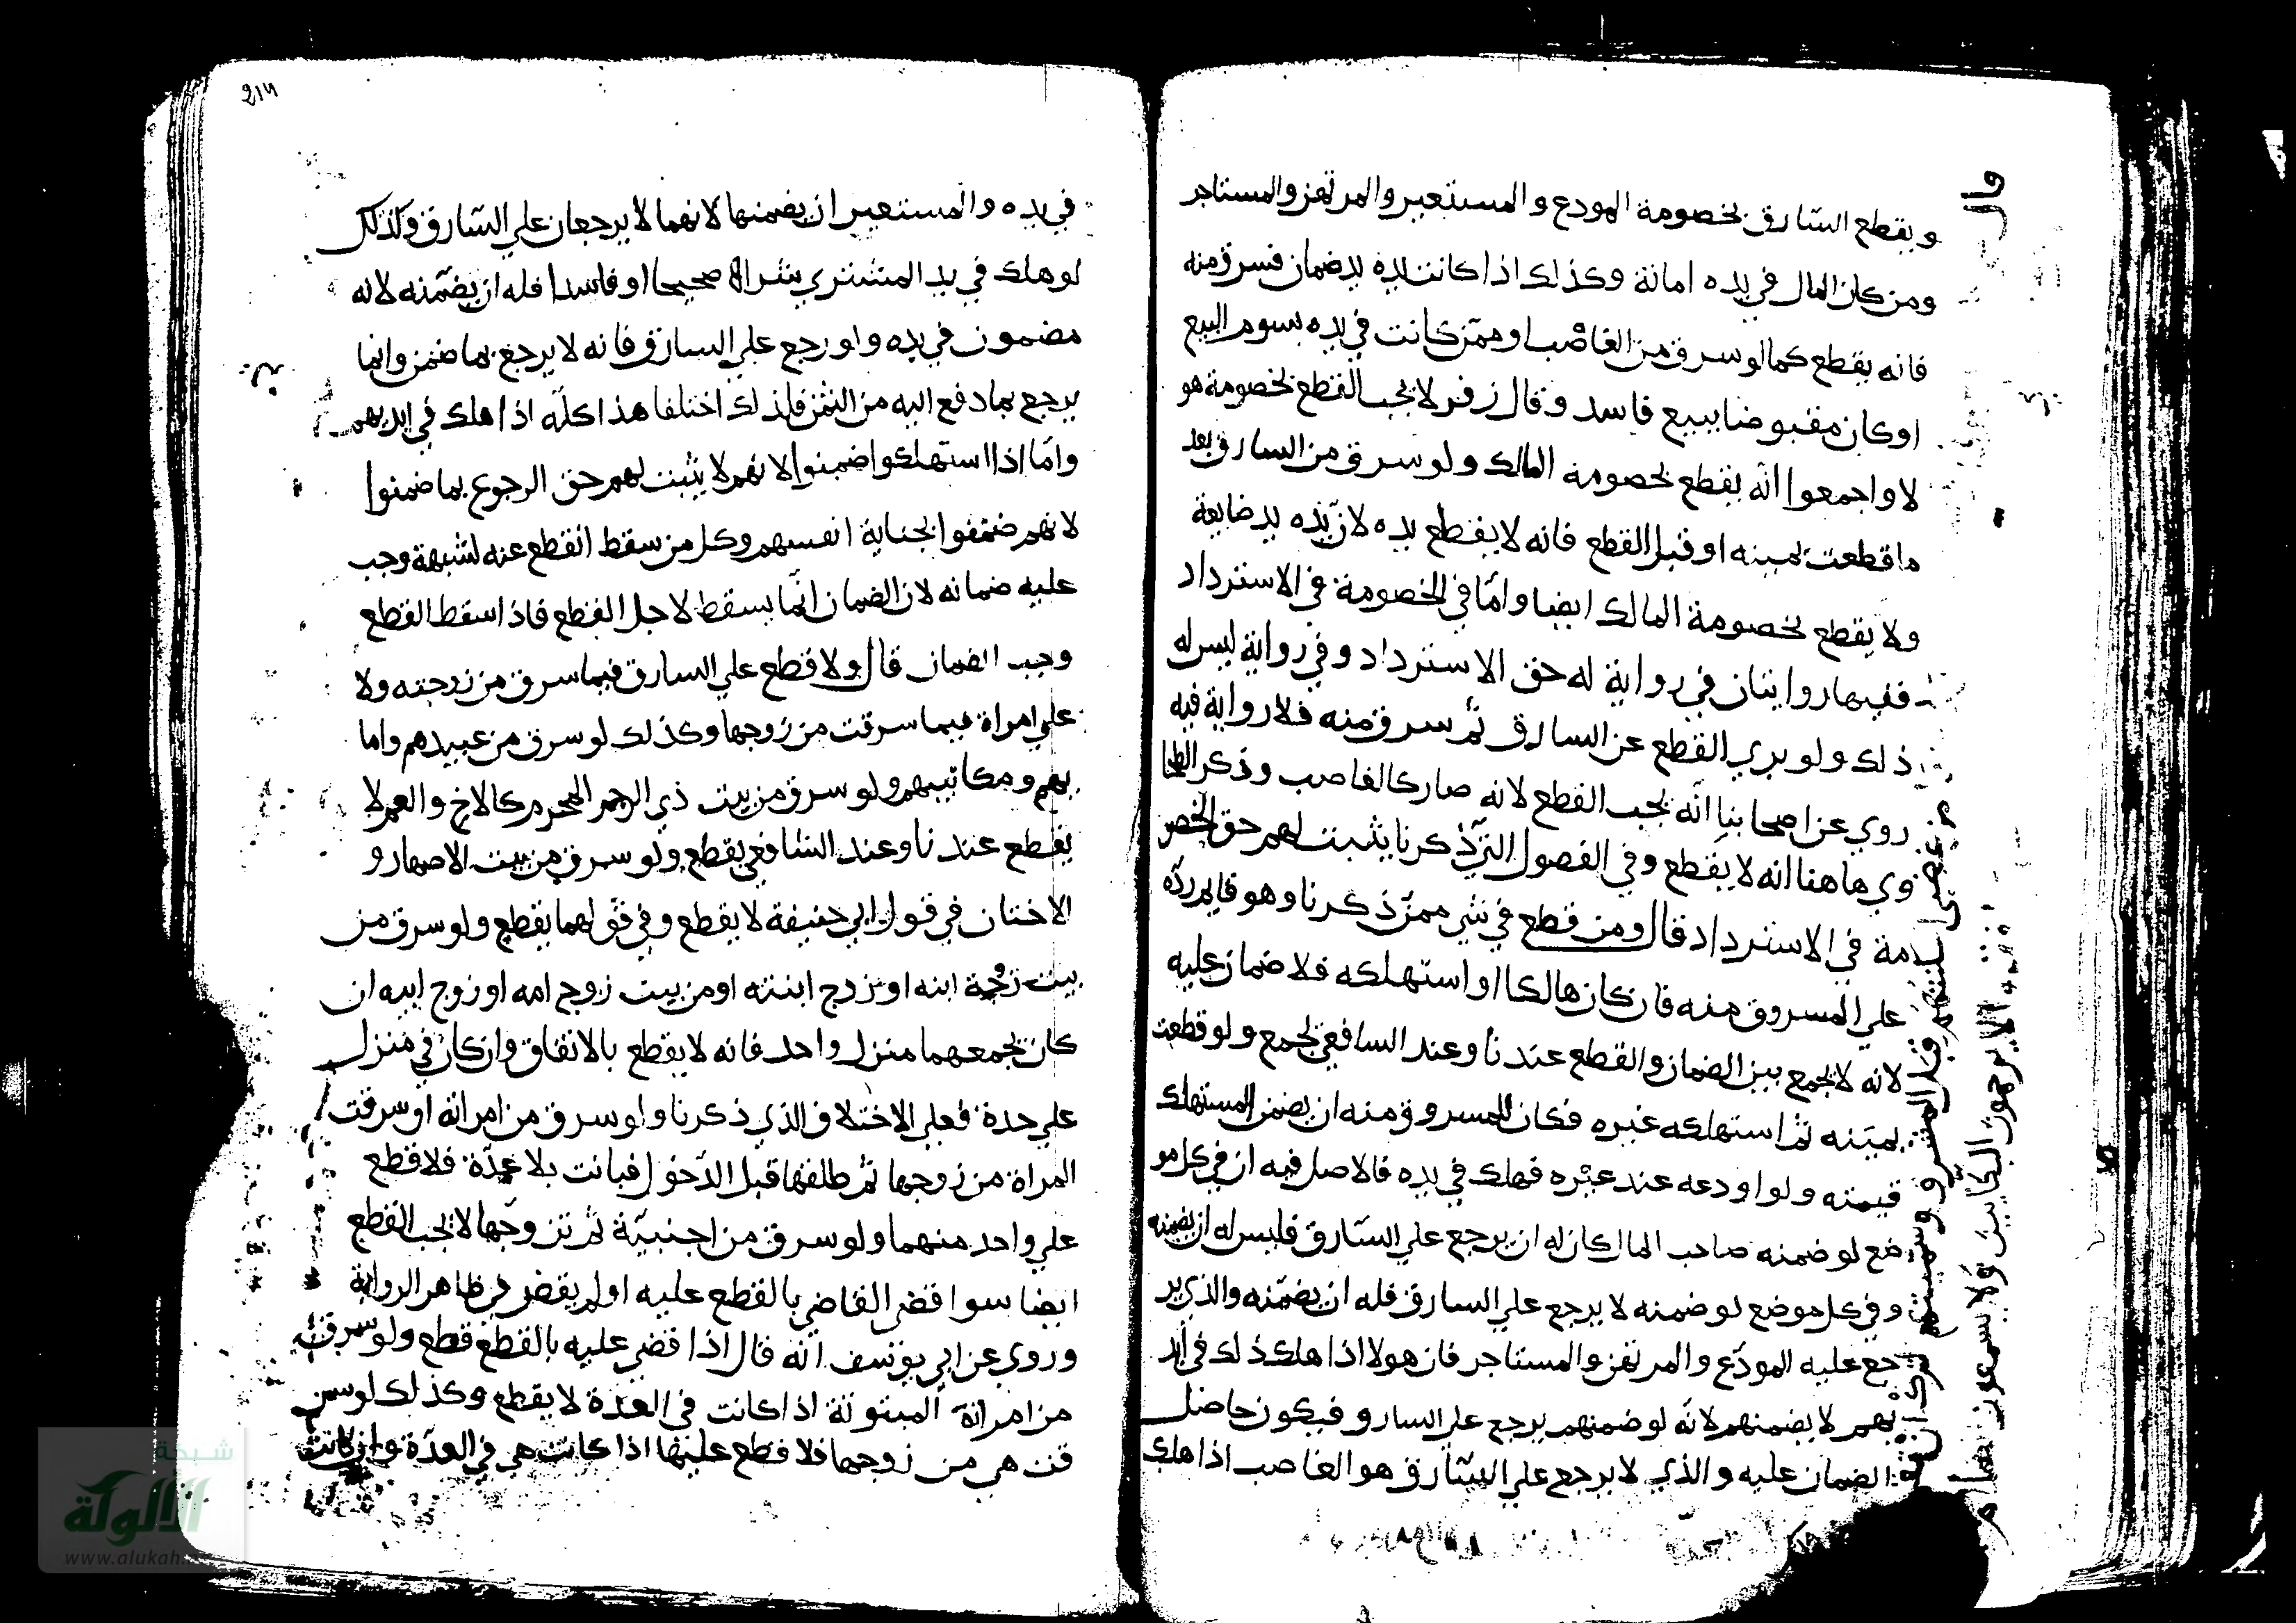 قال
ويقطع السّارق بخصومة المودع والمستعير والمرتهن والمستاجر
ومن كان المال في يده امانة وكذلك اذا كانت يده يد ضمان فسرق منه
فانه يقطع كما لو سرق من الغاصب او ممّن كانت في يده بسوم البيع
او كان مقبوضا ببيع فاسد وقال زفر لا يجب القطع بخصومة هو
لا واجمعوا انّه يقطع بخصومة المالك ولو سرق من السارق بعد
ما قطعت يمينه او قبل القطع فانه لا يقطع يده لانّ يده يد ضايعة
ولا يقطع بخصومة المالك ايضا وامّا في الخصومة في الاسترداد
ففيها روايتان في رواية له حق الاسترداد وفي رواية ليس له
ذلك ولو بري القطع عن السارق ثم سرق منه فلا رواية فيه
روي عن اصحابنا انّه يجب القطع لانه صار كالغاصب وذكر الطحا
وي هاهنا انه لا يقطع وفي الفصول التي ذكرنا يثبت لهم حق الخصو
مة في الاسترداد قال ومن قطع في شي ممّن ذكرنا وهو قايم ردّه
علي المسروق منه فان كان هالكا او استهلكه فلا ضمان عليه
لانه لا يجمع بين الضمان والقطع عندنا وعند السافعي يجمع ولو قطعت
يمينه ثم استهلكه غيره فكان للمسروق منه ان يضمن المستهلك
قيمته ولو اودعه عند غيره فهلك في يده فالاصل فيه ان في كل مو
ضع لو ضمنه صاحب المال كان له ان يرجع علي السّارق فليس له ان يضمنه
وفي كل موضع لو ضمنه لا يرجع علي السارق فله ان يضمّنه والذي ير
جع عليه المودَع والمرتهن والمستاجر فان هولا اذا هلك ذلك في ايد
يهم لا يضمنهم لانّه لو ضمنهم يرجع علي السارق فيكون حاصل
الضمان عليه والذي لا يرجع علي السّارق هو الغاصب اذا هلك
في يده والمستعير ان يضمنها لانهما لا يرجعان علي السّارق وكذلك
لو هلك في يد المشتري شراء صحيحا او فاسدا فله ان يضمّنه لانه
مضمون في يده ولو رجع علي السارق فانه لا يرجع بما ضمن وانما
يرجع بما دفع اليه من الثمن فلذلك اختلفا هذا كلّه اذا هلك في ايديهم
وامّا اذا استهلكوا ضمنوا لانهم لا يثبت لهم حق الرجوع بما ضمنوا
لانهم ضمنوا بجناية انفسهم وكل من سقط القطع عنه لشبهة وجب
عليه ضمانه لان الضمان انّما يسقط لاجل القطع فاذا سقط القطع
وجب الضمان قال ولا قطع علي السارق فيما سرق من زوجته ولا
علي امراة فيما سرقت من زوجها وكذلك لو سرق من عبيدهم واما
يهم ومكاتبيهم ولو سرق من بيت ذي الرحم المحرم كالاخ والعم لا
يقطع عندنا وعند الشافعي يقطع ولو سرق من بيت الاصهار و
الاختان في قول ابي حنيفة لا يقطع وفي قولهما يقطع ولو سرق من
بيت زوجة ابنه او زوج ابنته او من بيت زوج امه او زوج ابيه ان
كان يجمعهما منزل واحد فانه لا يقطع بالاتفاق وان كان في منزل
علي حدة فعلي الاختلاف الذي ذكرنا ولو سرق من امراته او سرقت
المراة من زوجها ثم طلقها قبل الدّخول فبانت بلا عدّة فلا قطع
علي واحد منهما ولو سرق من اجنبيّة ثم تزوّجها لا يجب القطع
ايضا سوا قضي القاضي بالقطع عليه او لم يقض في ظاهر الرواية
وروي عن ابي يوسف انه قال اذا قضي عليه بالقطع قطع ولو سرق
من امراته المبتوتة اذا كانت في العدة لا يقطع وكذلك لو سر
قت هي من زوجها فلا قطع عليها اذا كانت هي في العدّة وان كانت
شبكة
الألوكة